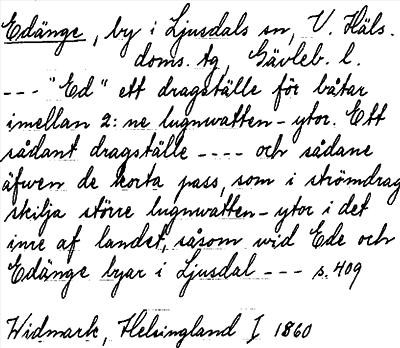 Edänge, by i Ljusdals sn, V. Häls.
doms. tg, Gävleb. l.
--- "Ed" ett dragställe för båtar
imellan 2:ne lugnwatten-ytor. Ett
sådant dragställe ---- och sådane
äfwen de korta pass, som i strömdrag
skilja större lugnwatten-ytor i det
inre af landet, såsom wid Ede och
Edänge byar i Ljusdal --- s. 409
Widmark, Helsingland I 1860